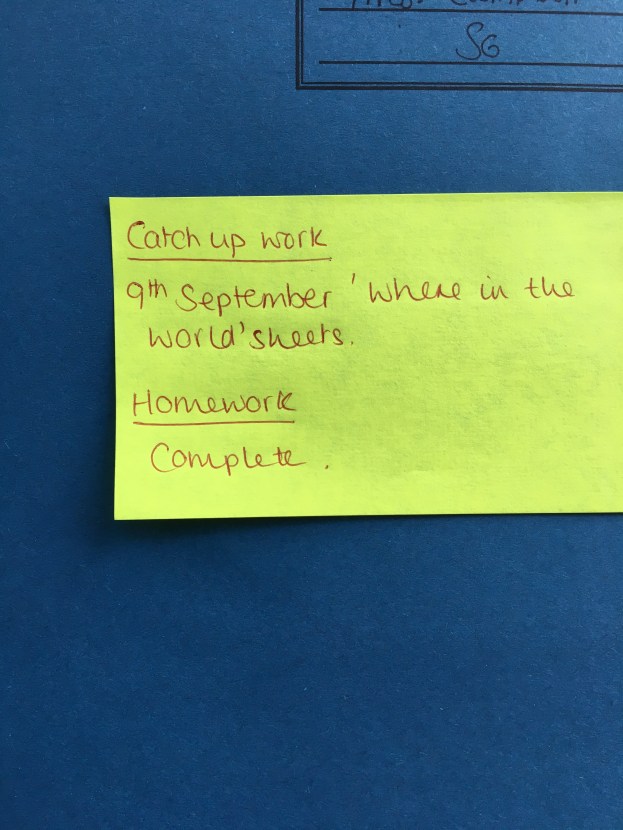 SG
Catch up work
9th September 'Where in the
world' sheets.
Homework
Complete.